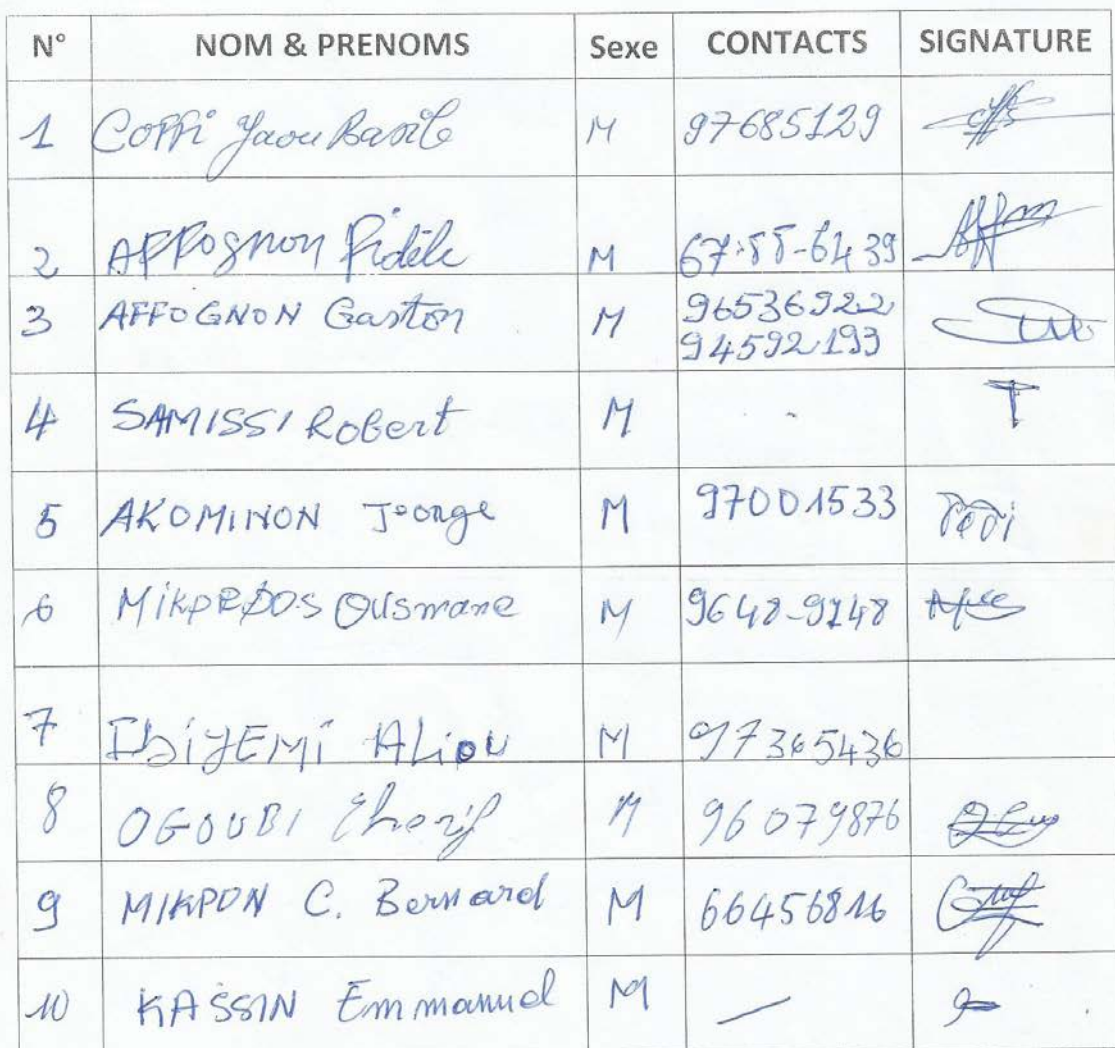 N° NOM & PRENOMS Sexe CONTACTS SIGNATURE
1 Coffi Yaou Basile M 97685129
2 AFFognon Fidèle M 67-55-6439
3 AFFOGNON Gaston M 96536922
94592193
4 SAMISSI Robert M -
5 AKOMINON Jeorge M 97001533
6 Ousmane M 9648-9748
7 IbiYEMi ALiou M 97365436
8 OGOUBI Cherif M 96079876
9 MIKPON C. Bernard M 66456816
10 KASSIN Emmanuel M —